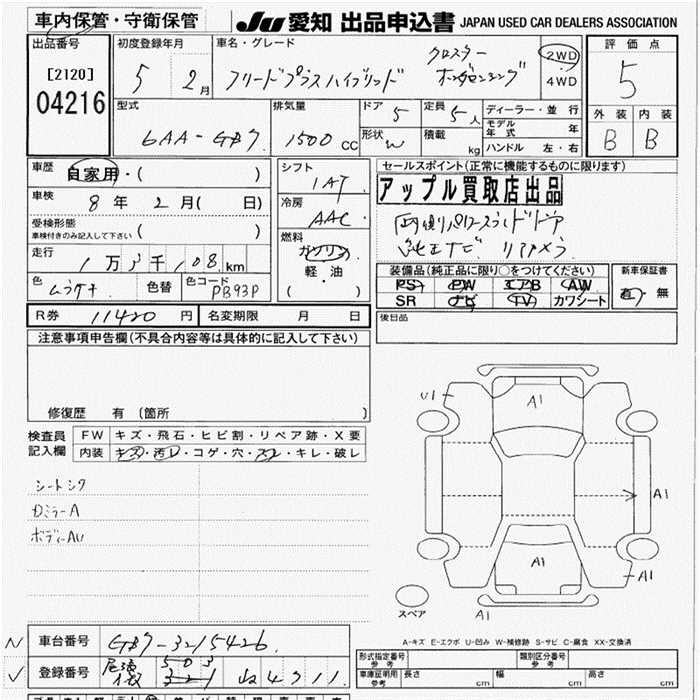 車内保管・守衛保管
JU 愛知 出品申込書 JAPAN USED CAR DEALERS ASSOCIATION
出品番号
[2120]
04216
初度登録年月
5 2月
車名・グレード
フリードプラスハイブリッド
クロスター
ホンダセンシング
2WD
4WD
評価点
5
外装 内装
B B
型式
6AA-GB7
排気量
1500 CC
ドア 5
定員 5人
形状 W
積載 kg
ディーラー・並行
モデル年式 年
ハンドル 左・右
車歴
自家用・( )
車検
8年 2月( 日)
受検形態
車検付きのみ記入して下さい ( )
走行
1万3千108 km
色 ムラサキ 色替 色コード PB93P
シフト
1AT
冷房
AAC
燃料
ガソリン
軽・油
( )
セールスポイント(正常に機能するものに限ります)
アップル買取店出品
両側パワースライドドア
純正ナビ リアカメラ
装備品(純正品に限り〇をつけてください)
PS PW エアB AW
SR ナビ TV カワシート
新車保証書
有・無
R券 11420 円 名変期限 月 日
後日品
注意事項申告欄(不具合内容等は具体的に記入して下さい)
修復歴 有(箇所 )
検査員
記入欄
FW キズ・飛石・ヒビ割・リペア跡・X要
内装 キズ・汚レ・コゲ・穴・スレ・キレ・破レ
シートシワ
ボディーAU
U1
A1
A1
A1
A1
A1
スペア
A-キズ E-エクボ U-凹み W-補修跡 S-サビ C-腐食 XX-交換済
車台番号 GB7-3215426
登録番号 尾張 503
形式指定番号 参考
類別区分番号 参考
車庫証明用 参考 長さ cm 幅 cm 高さ cm